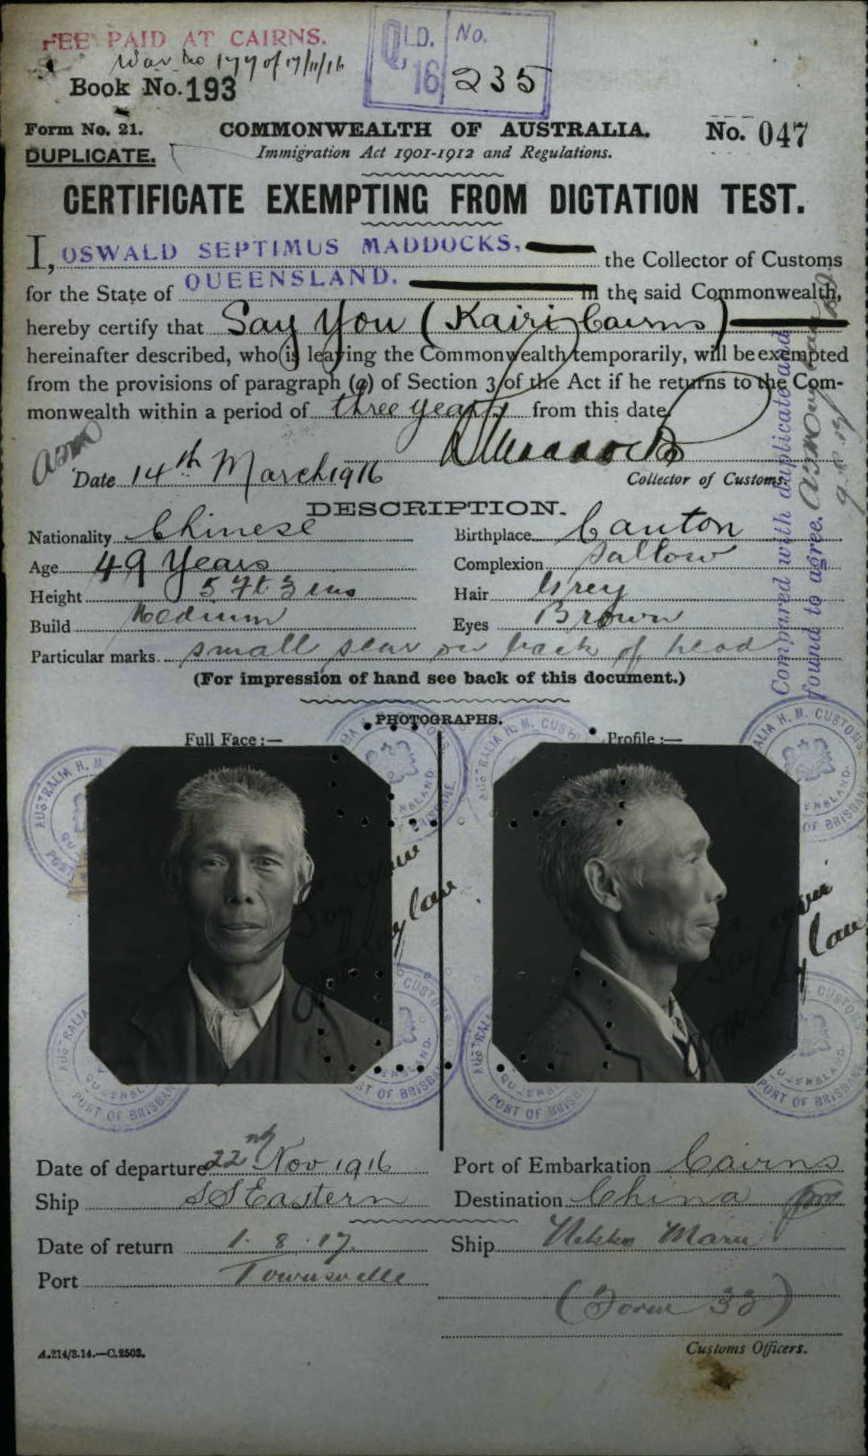 FEE PAID AT CAIRNS.
QLD. No.
'16 235
War No 177 of 17/11/16
Book No. 193
Form No. 21. COMMONWEALTH OF AUSTRALIA. No. 047
DUPLICATE. Immigration Act 1901-1912 and Regulations.
CERTIFICATE EXEMPTING FROM DICTATION TEST.
I, OSWALD SEPTIMUS MADDOCKS, the Collector of Customs
for the State of QUEENSLAND. in the said Commonwealth,
hereby certify that Say You (Kairi, Cairns)
hereinafter described, who is leaving the Commonwealth temporarily, will be exempted
from the provisions of paragraph (a) of Section 3 of the Act if he returns to the Com-
monwealth within a period of three years from this date
Date 14th March 1916 Collector of Customs.
Compared with duplicate and
found to agree.
DESCRIPTION.
Nationality Chinese Birthplace Canton
Age 49 Years Complexion Sallow
Height 5 ft 3 ins Hair Grey
Build Medium Eyes Brown
Particular marks small scar on back of head
(For impression of hand see back of this document.)
PHOTOGRAPHS.
Full Face :— Profile :—
AUSTRALIA H. M. CUSTOMS
QUEENSLAND.
PORT OF BRISBANE
Date of departure 22nd Nov 1916 Port of Embarkation Cairns
Ship SS Eastern Destination China
Date of return 1. 8. 17. Ship Nikko Maru
Port Townsville
(Form 32)
A.214/3.14.—C.2503. Customs Officers.